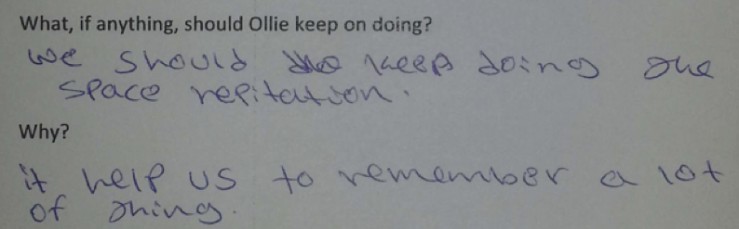 What, if anything, should Ollie keep on doing?
we should keep doing the
space repitation.
Why?
it help us to remember a lot
of thing.